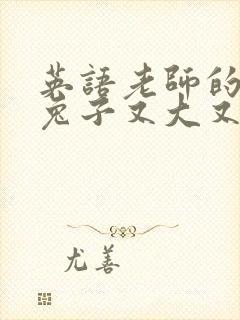 英語老師的
兔子又大又
尤善